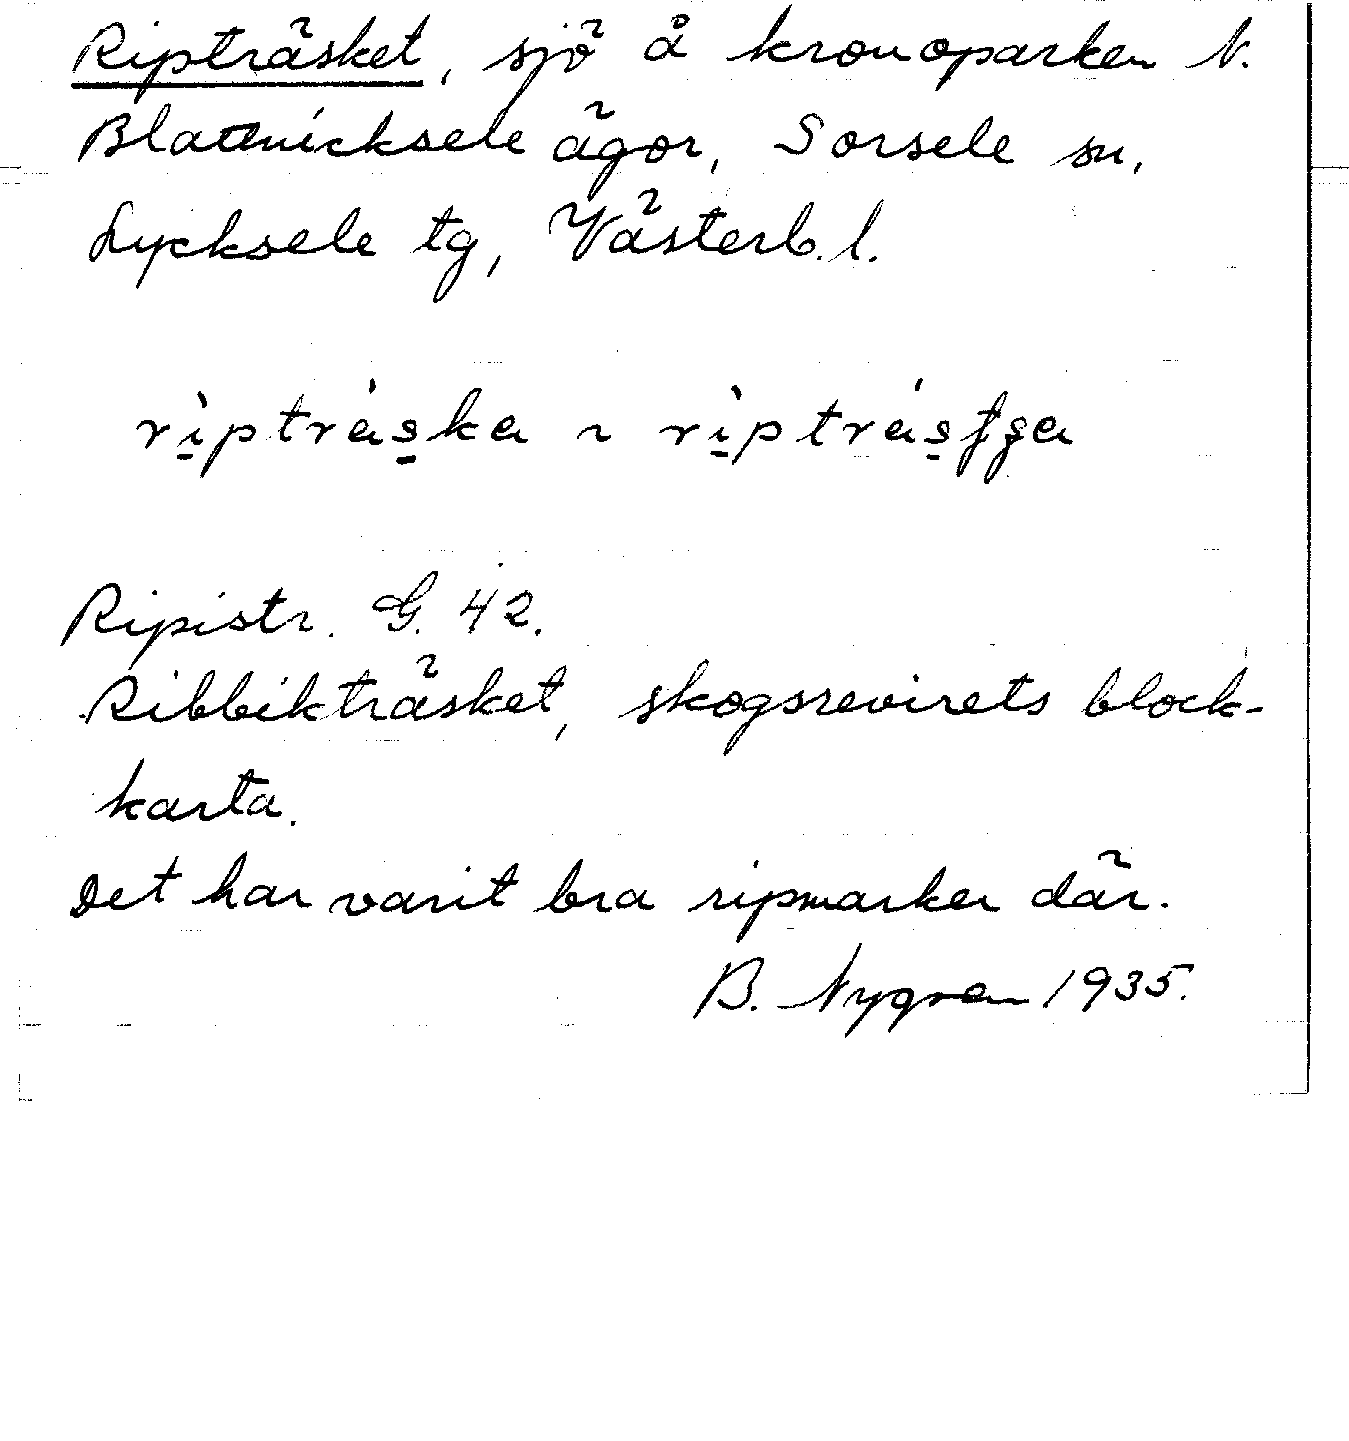 Ripträsket, sjö å kronoparken N.
Blattnicksele ägor, Sorsele sn,
Lycksele tg, Västerb. l.
rìptráska ~ rìptrásʃʂa
Ripistr. G. 42.
Ribbikträsket, skogsrevirets block-
karta.
Det har varit bra ripmarker där.
B. Nygren 1935.